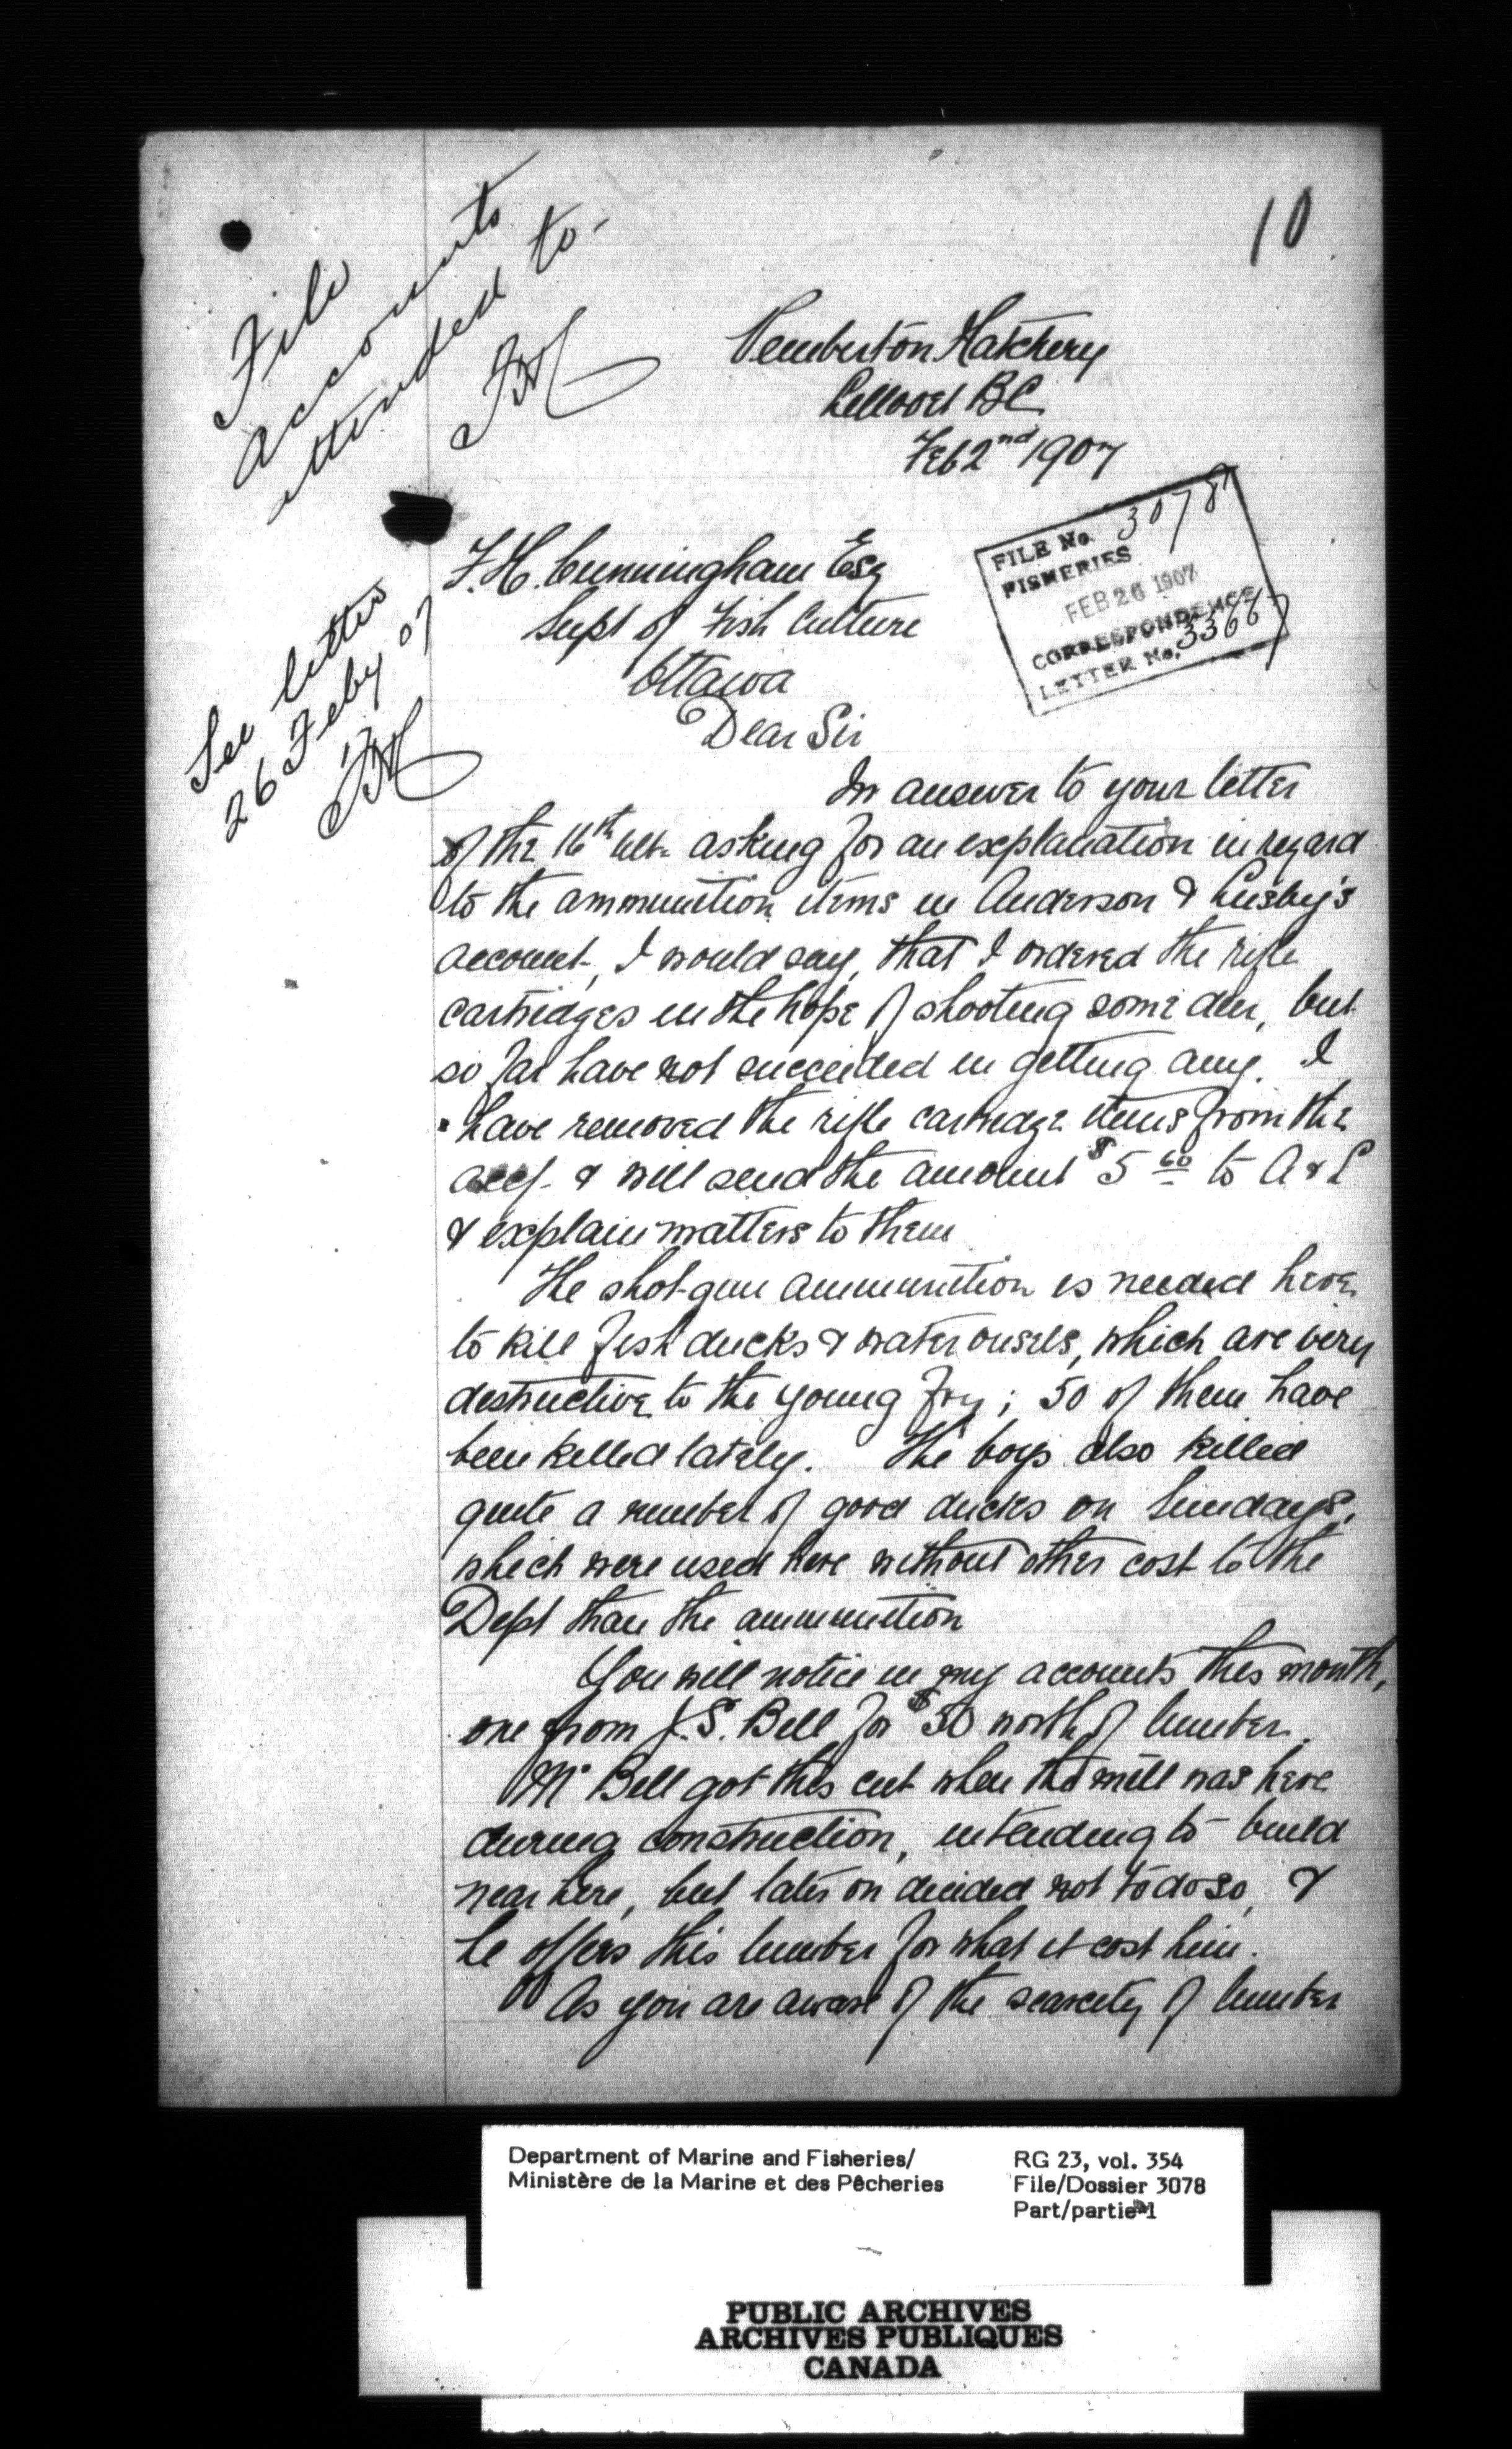 10
File
accounts
attended to-
FHC
Pemberton Hatchery
Lillooet BC
Feb 2nd 1907
FILE No. 3078
FISHERIES
FEB 26 1907
CORRESPONDENCE
LETTER No. 33667
See letter
26 Feby 07
FHC
F.H. Cunningham Esq
Supt of Fish Culture
Ottawa
Dear Sir
In answer to your letter
of the 16th ult. asking for an explanation in regard
to the ammunition items in Anderson & Lusby's
account, I would say, that I ordered the rifle
cartridges in the hope of shooting some deer, but
so far have not succeeded in getting any. I
have removed the rifle cartridge items from the
acct. & will send the amount $5 60 to A & L
& explain matters to them
The shot-gun ammunition is needed here
to kill fish ducks & water ousels, which are very
destructive to the young fry; 50 of them have
been killed lately. The boys also killed
quite a number of good ducks on Sundays,
which were used here without other cost to the
Dept than the ammunition
You will notice in my accounts this month,
one from J.S. Bell for $50 worth of lumber.
Mr Bell got this cut when the mill was here
during construction, intending to build
near here, but later on decided not to do so, &
he offers this lumber for what it cost him.
As you are aware of the scarcity of lumber
Department of Marine and Fisheries/
Ministère de la Marine et des Pêcheries
RG 23, vol. 354
File/Dossier 3078
Part/partie 1
PUBLIC ARCHIVES
ARCHIVES PUBLIQUES
CANADA